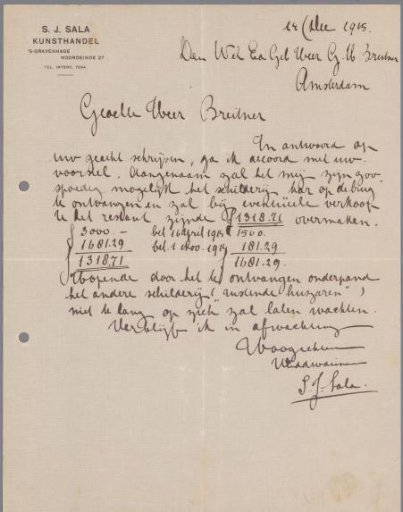 S. J. SALA
KUNSTHANDEL
'S-GRAVENHAGE
NOORDEINDE 27
TEL. INTERC. 7094
14 Dec 1915.
Den Wel Ed Geb Heer G. H. Breitner
Amsterdam
Geachte Heer Breitner
In antwoord op
uw geacht schrijven, ga ik accoord met uw
voorstel. Aangenaam zal het mij zijn zoo
spoedig mogelijk het schilderij kar op de brug
te ontvangen en zal bij eventueele verkoop
U het restant zijnde ƒ 1318.71 overmaken.
ƒ 3000.- bet 16 April 1914 ƒ 1500.
1681.29 bet. 1 Nov. 1914 181.29
1318.71 1681.29
Hopende door het te ontvangen onderpand
het andere schilderij ( "rustende huzaren" )
niet te lang op zich zal laten wachten.
Verblijf ik in afwachting
Hoogachtend
S. J. Sala.